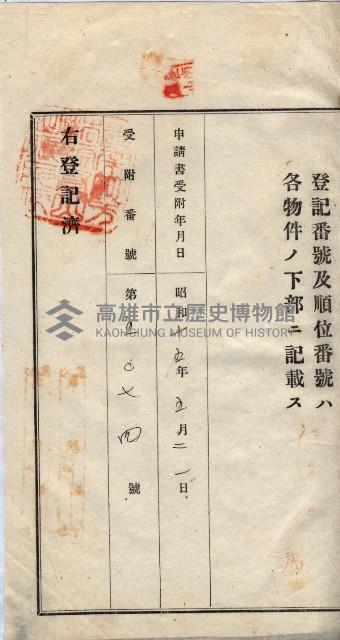 登記番號及順位番號ハ
各物件ノ下部ニ記載ス
申請書受附年月日
昭和十五年五月二一日
受附番號
第五〇七四號
右登記濟
高雄市立歷史博物館
KAOHSIUNG MUSEUM OF HISTORY